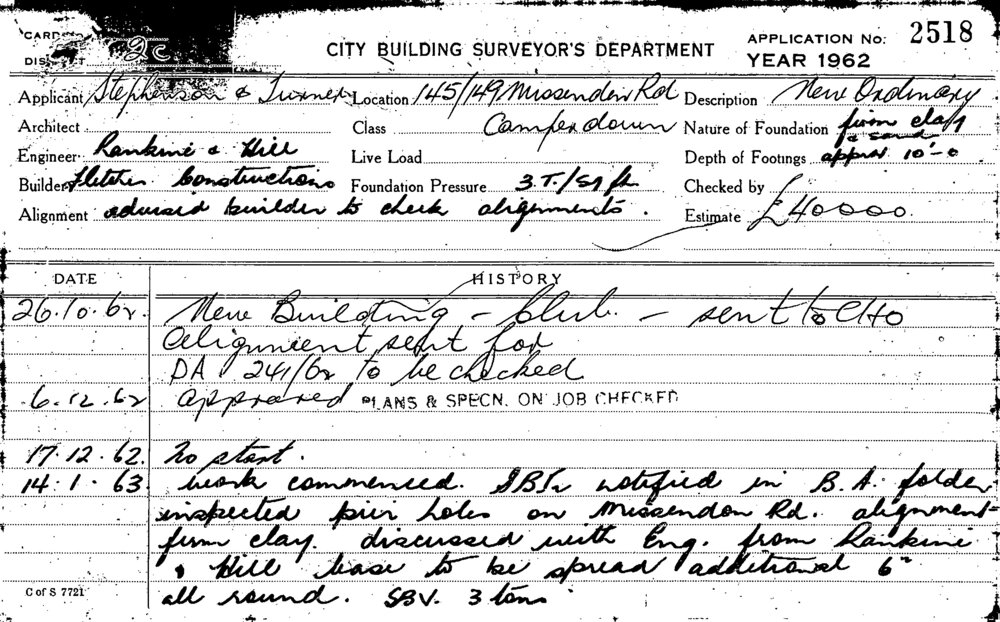 CARD
2c
CITY BUILDING SURVEYOR'S DEPARTMENT
APPLICATION No: 2518
YEAR 1962
Applicant Stephenson & Turner Location 145/149 Missenden Rd Description New Ordinary
Architect Class Camperdown Nature of Foundation firm clay & sand
Engineer Rankine & Hill Live Load Depth of Footings approx 10'-0
Builder Fletcher Constructions Foundation Pressure 3.T./sq ft Checked by
Alignment advised builder to check alignments. Estimate £40000.
DATE HISTORY
26.10.62. New Building - Club. - sent to CHO
Alignment sent for
DA 241/62 to be checked
6.12.62 approved PLANS & SPECN. ON JOB CHECKED
17.12.62. No start.
14.1.63 work commenced. notified in B.A. folder
inspected pier holes on Missendon Rd. alignment-
firm clay. discussed with Eng. from Rankine
& Hill base to be spread additional 6"
all round. SBV. 3 tons
C of S 7721